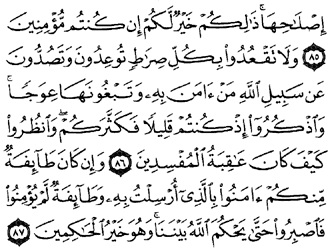 إِصْلَٰحِهَا ۚ ذَٰلِكُمْ خَيْرٌ لَّكُمْ إِن كُنتُم مُّؤْمِنِينَ
٨٥ وَلَا تَقْعُدُوا۟ بِكُلِّ صِرَٰطٍ تُوعِدُونَ وَتَصُدُّونَ
عَن سَبِيلِ ٱللَّهِ مَنْ ءَامَنَ بِهِۦ وَتَبْغُونَهَا عِوَجًا ۚ
وَٱذْكُرُوٓا۟ إِذْ كُنتُمْ قَلِيلًا فَكَثَّرَكُمْ ۖ وَٱنظُرُوا۟
كَيْفَ كَانَ عَٰقِبَةُ ٱلْمُفْسِدِينَ ٨٦ وَإِن كَانَ طَآئِفَةٌ
مِّنكُمْ ءَامَنُوا۟ بِٱلَّذِىٓ أُرْسِلْتُ بِهِۦ وَطَآئِفَةٌ لَّمْ يُؤْمِنُوا۟
فَٱصْبِرُوا۟ حَتَّىٰ يَحْكُمَ ٱللَّهُ بَيْنَنَا ۚ وَهُوَ خَيْرُ ٱلْحَٰكِمِينَ ٨٧